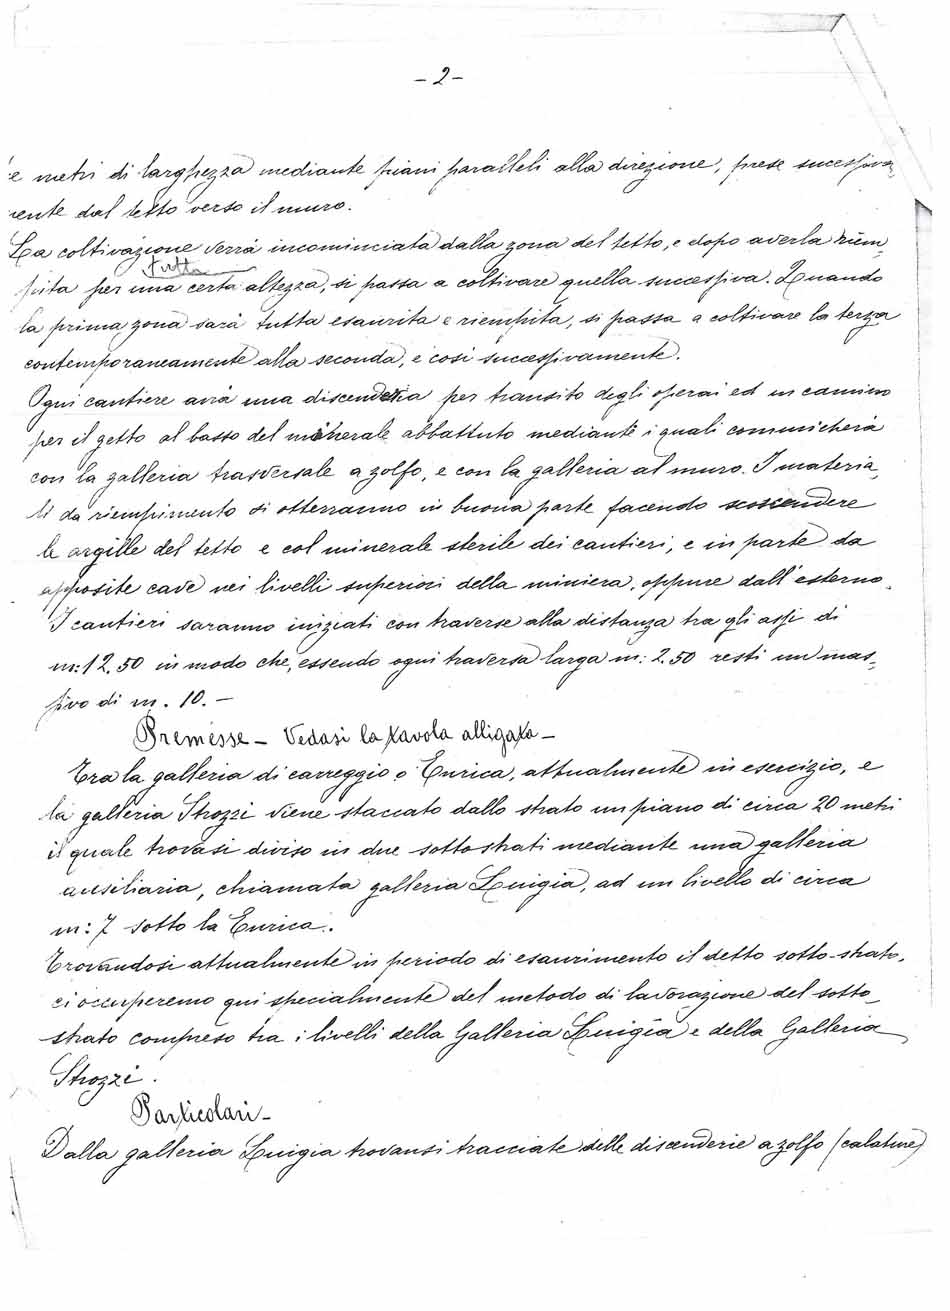 -2-
e metri di larghezza mediante piani paralleli alla direzione, prese successiva-
mente dal tetto verso il muro.
La coltivazione verrà incominciata dalla zona del tetto, e dopo averla riem-
tutta
pita per una certa altezza, si passa a coltivare quella successiva. Quando
la prima zona sarà tutta esaurita e riempita, si passa a coltivare la terza
contemporaneamente alla seconda, e così successivamente.
Ogni cantiere avrà una discenderia per transito degli operai ed un camino
per il getto al basso del minerale abbattuto mediante i quali comunicherà
con la galleria trasversale a zolfo, e con la galleria al muro. I materia-
li da riempimento si otterranno in buona parte facendo scoscendere
le argille del tetto e col minerale sterile dei cantieri, e in parte da
apposite cave nei livelli superiori della miniera, oppure dall'esterno.
I cantieri saranno iniziati con traverse alla distanza tra gli assi di
m: 12.50 in modo che, essendo ogni traversa larga m: 2.50 resti un mas-
sivo di m. 10.-
Premesse - Vedasi la tavola alligata -
Tra la galleria di carreggio o Enrica, attualmente in esercizio, e
la galleria Strozzi viene staccato dallo strato un piano di circa 20 metri
il quale trovasi diviso in due sottostrati mediante una galleria
ausiliaria, chiamata galleria Luigia, ad un livello di circa
m: 7 sotto la Enrica.
Trovandosi attualmente in periodo di esaurimento il detto sotto-strato,
ci occuperemo qui specialmente del metodo di lavorazione del sotto-
strato compreso tra i livelli della Galleria Luigia e della Galleria
Strozzi.
Particolari -
Dalla galleria Luigia trovansi tracciate delle discenderie a zolfo (calature)